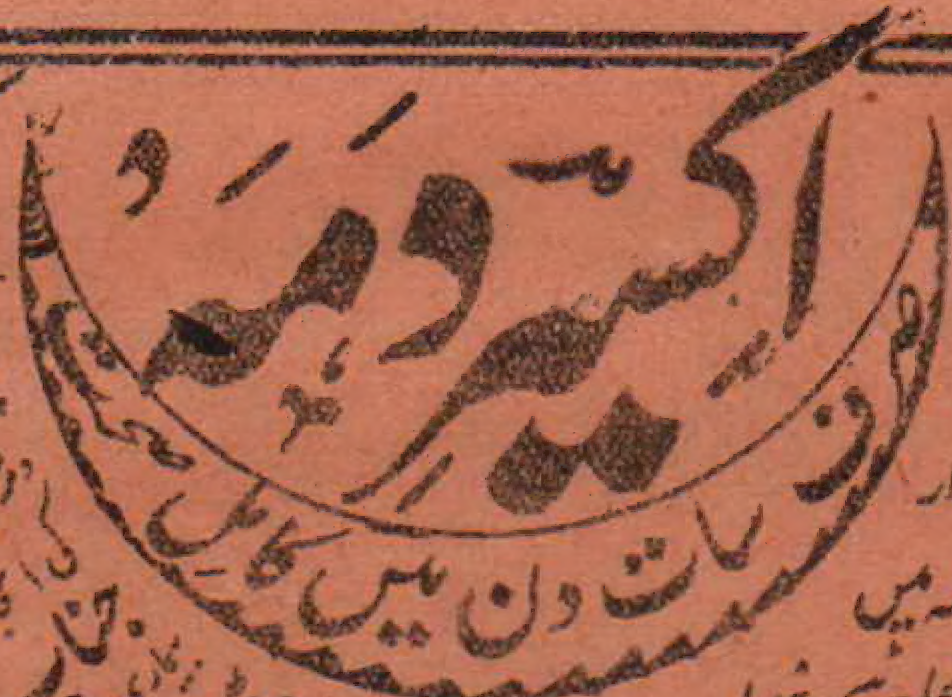 اکسیر دمہ
صرف سات دن میں کامل صحت
میں